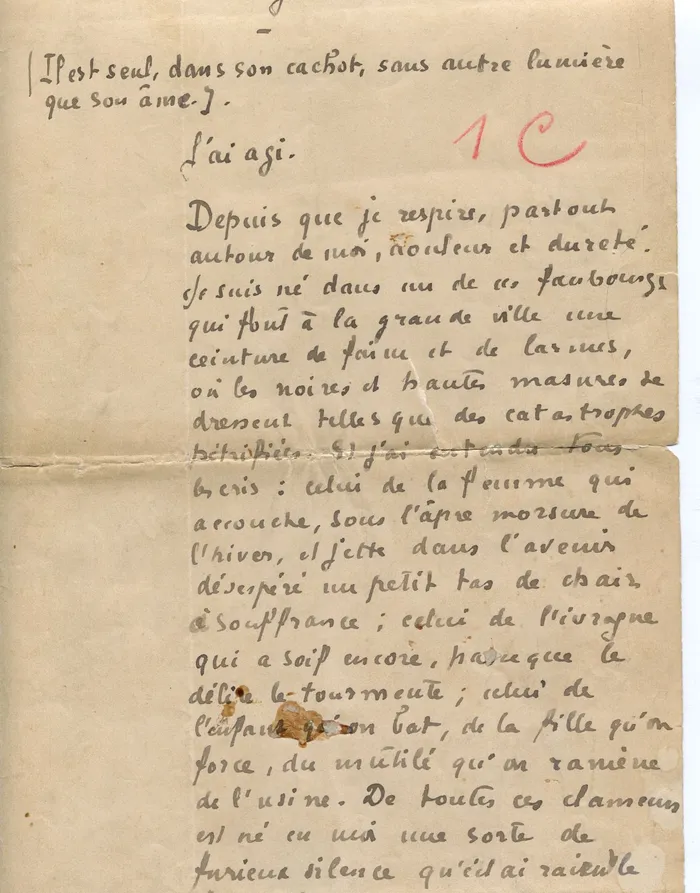 [Il est seul, dans son cachot, sans autre lumière
que son âme.].
J'ai agi.
1 C
Depuis que je respire, partout
autour de moi, douleur et dureté.
Je suis né dans un de ces faubourgs
qui font à la grande ville une
ceinture de faim et de larmes,
où les noires et hautes masures se
dressent telles que des catastrophes
pétrifiées. Et j'ai entendu tous
les cris : celui de la femme qui
accouche, sous l'âpre morsure de
l'hiver, et jette dans l'avenir
désespéré un petit tas de chair
à souffrance ; celui de l'ivrogne
qui a soif encore, parce que le
délire le tourmente ; celui de
l'enfant qu'on bat, de la fille qu'on
force, du mutilé qu'on ramène
de l'usine. De toutes ces clameurs
est né en moi une sorte de
furieux silence